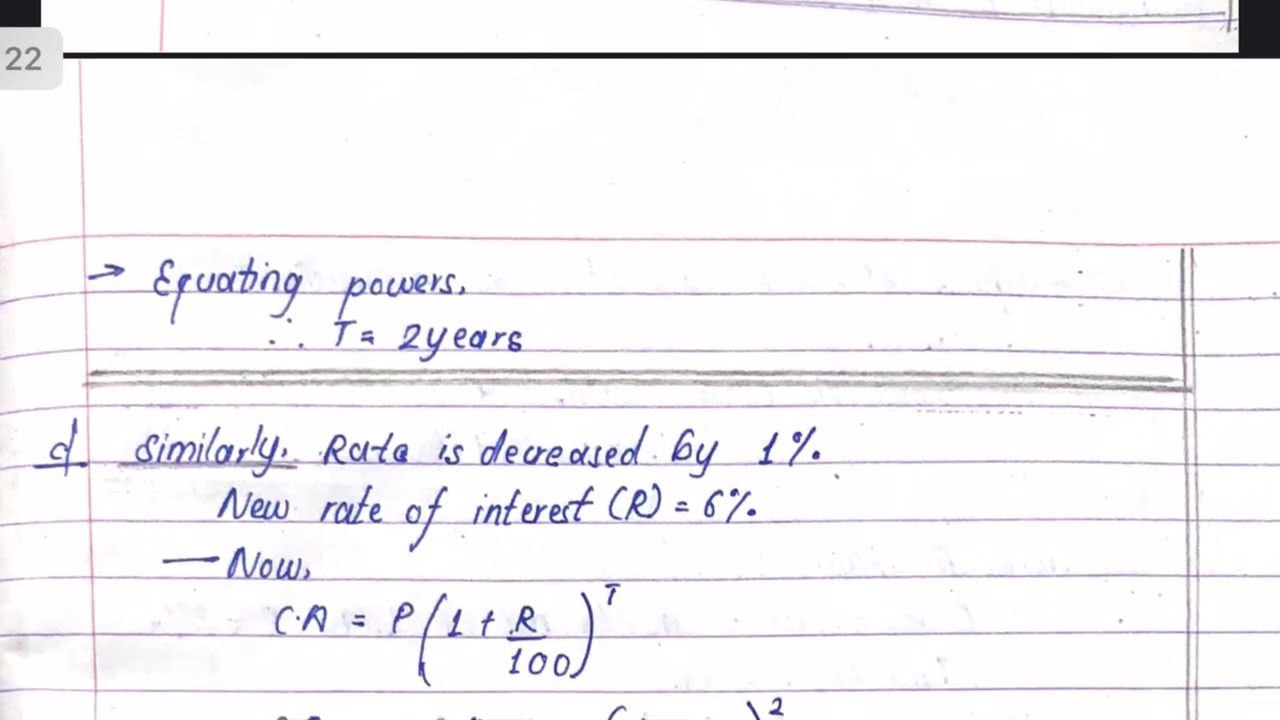 22
→ Equating powers,
∴ T = 2 years
c) Similarly, Rate is decreased by 1%.
New rate of interest (R) = 6%.
— Now,
C.A = P(1 + R/100)^T